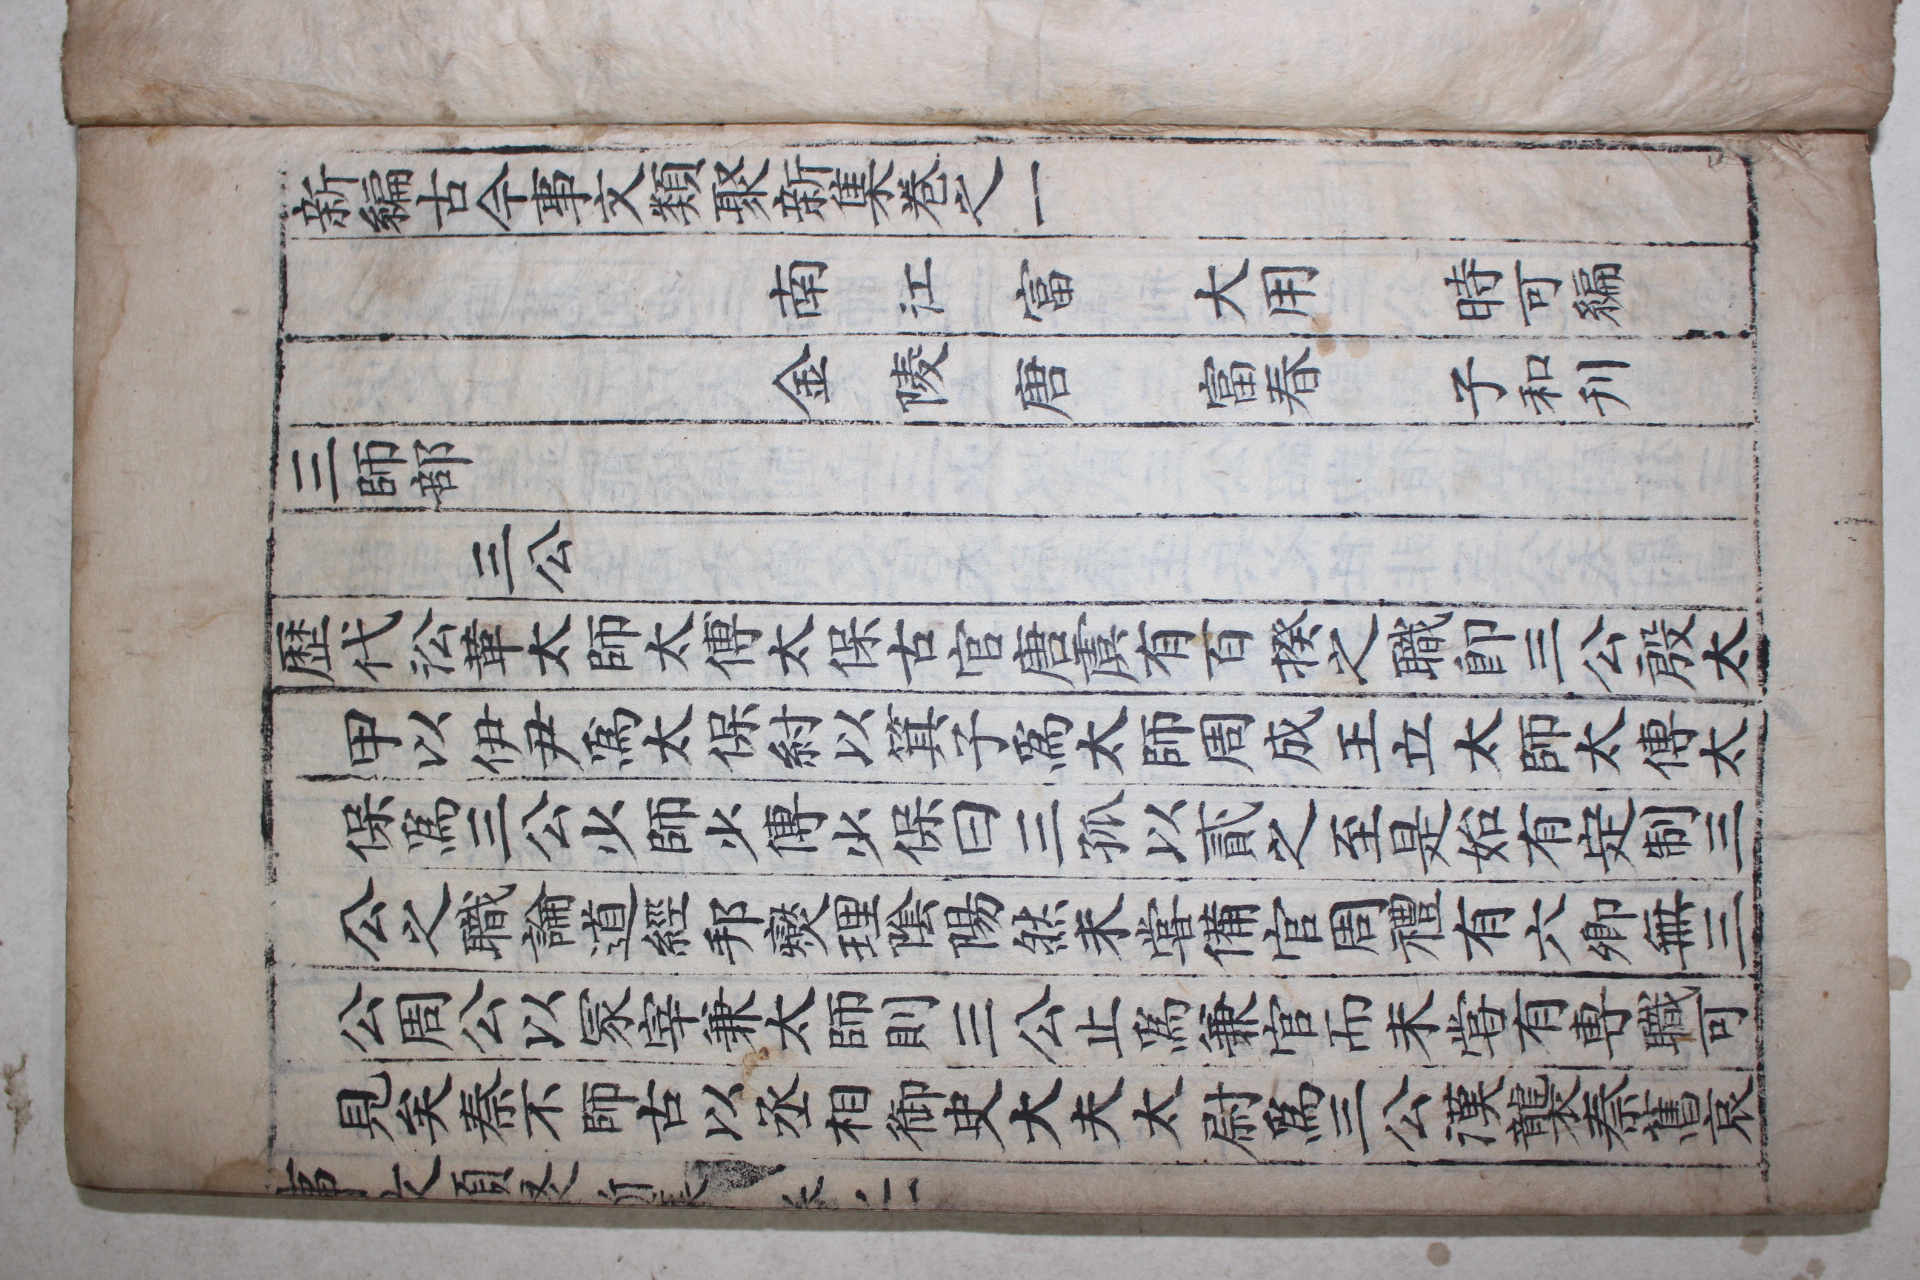 新編古今事文類聚新集卷之一
南江 富 大用 時可編
金陵 唐 富春 子和刊
三師部
三公
歷代沿革太師太傅太保古官唐虞有百揆之職卽三公殷太
甲以伊尹爲太保紂以箕子爲太師周成王立太師太傅太
保爲三公少師少傅少保曰三孤以貳之至是始有定制三
公之職論道經邦爕理陰陽然未嘗備官周禮有六卿無三
公周公以冢宰兼太師則三公止爲兼官而未嘗有專職可
見矣秦不師古以丞相御史大夫太尉爲三公漢襲秦舊哀
事文類聚 新集 卷之一